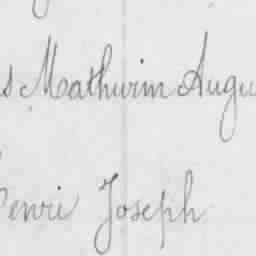 s Mathurin Augu
Henri Joseph